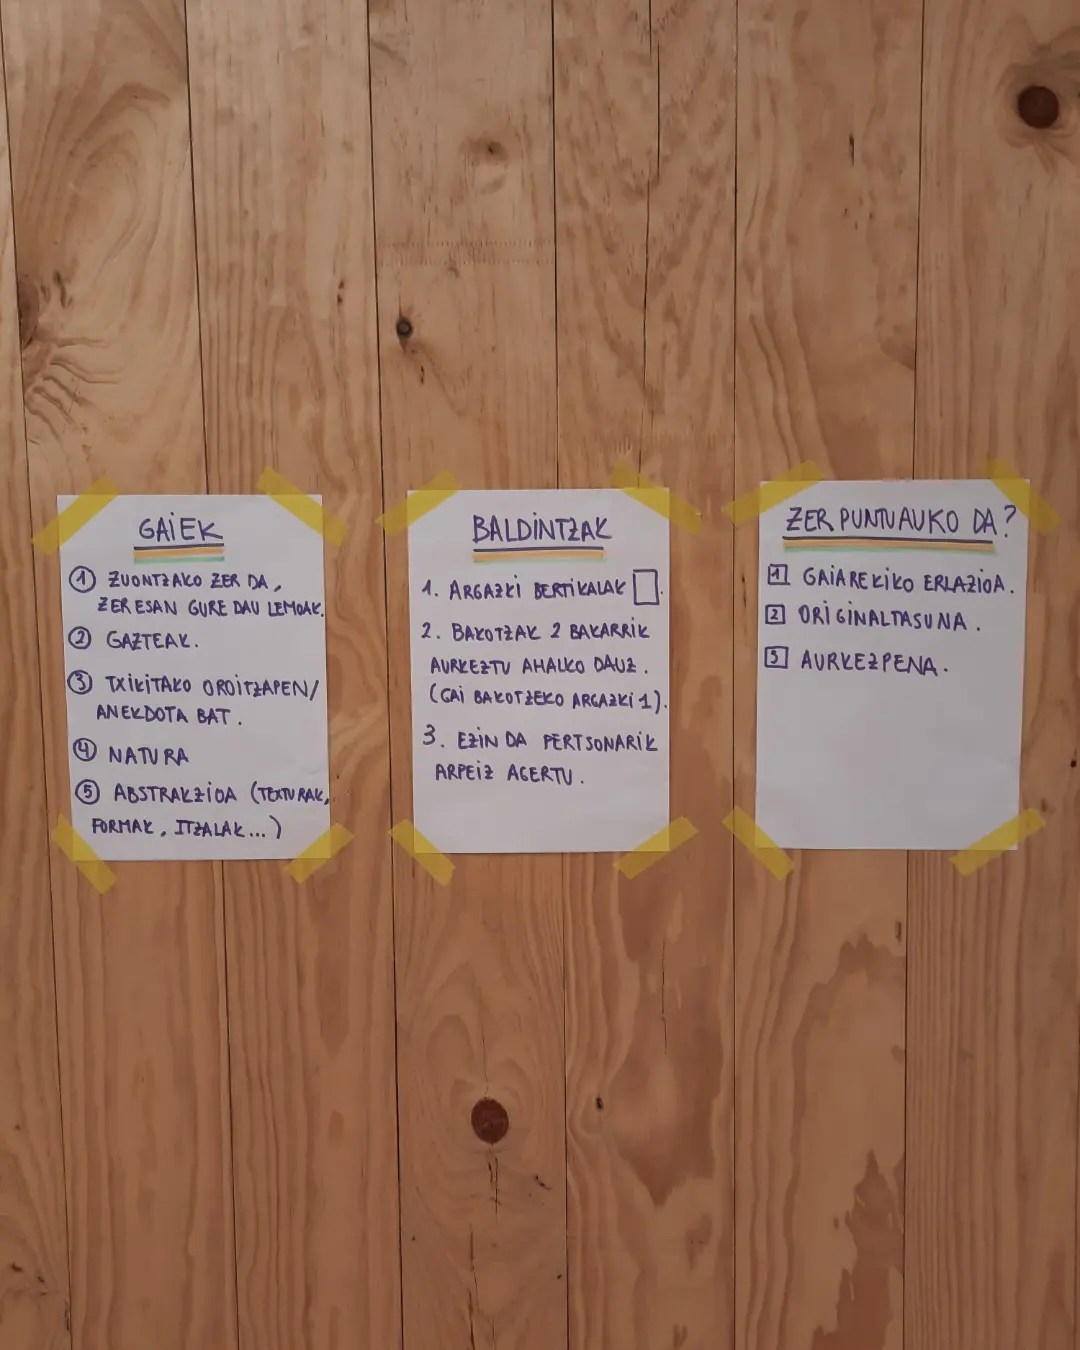 GAIEK
1 ZUONTZAKO ZER DA,
ZER ESAN GURE DAU LEMOAK.
2 GAZTEAK.
3 TXIKITAKO OROITZAPEN/
ANEKDOTA BAT.
4 NATURA
5 ABSTRAKZIOA (TEXTURAK,
FORMAK, ITZALAK...)
BALDINTZAK
1. ARGAZKI BERTIKALAK.
2. BAKOTZAK 2 BAKARRIK
AURKEZTU AHALKO DAUZ.
(GAI BAKOTZEKO ARGAZKI 1).
3. EZIN DA PERTSONARIK
ARPEIZ AGERTU.
ZER PUNTUAUKO DA?
1 GAIAREKIKO ERLAZIOA.
2 ORIGINALTASUNA.
3 AURKEZPENA.